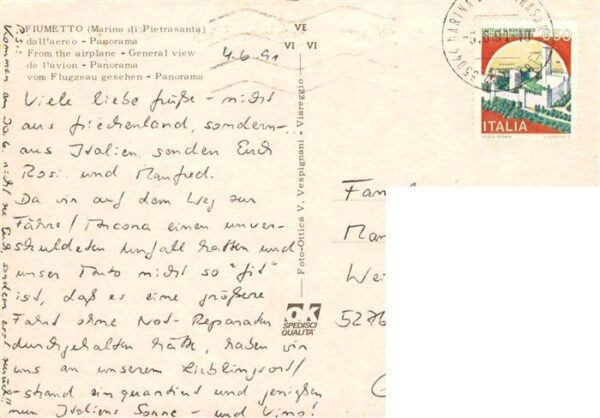 FIUMETTO (Marina di Pietrasanta)
dall'aereo - Panorama
From the airplane - General view
de l'avion - Panorama
vom Flugzeug gesehen - Panorama
VE
VI VI
4.6.91
Viele liebe Grüße - nicht
aus Griechenland, sondern
aus Italien, senden Euch
Rosi und Manfred.
Da wir auf dem Weg zur
Fähre / Ancona einen unver-
schuldeten Unfall hatten und
unser Auto nicht so "fit"
ist, daß es eine größere
Fahrt ohne Not-Reparatur
durchgehalten hätte, haben wir
uns an unserem Lieblingsort/
-strand einquartiert und genießen
nun Italiens Sonne - und Vino!
P.S.:
Kommen am 10.6. nicht zu Euch, sondern erst zurück!!
Foto-Ottica V. Vespignani - Viareggio
ok
SPEDISCI
QUALITÀ
ITALIA
Fam
Man
Wei
5276